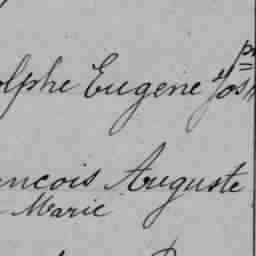 olphe Eugene Jos ph
ancois Auguste
Marie